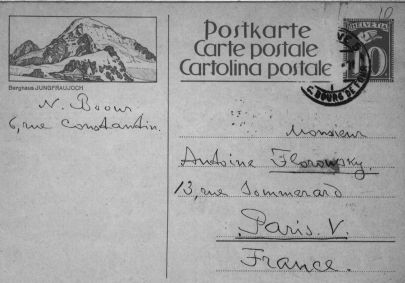 Postkarte
Carte postale
Cartolina postale
HELVETIA
10
10
Berghaus JUNGFRAUJOCH
N. Boour
6, rue Constantin.
Monsieur
Antoine Florowsky
13, rue Sommerard
Paris. V.
France.